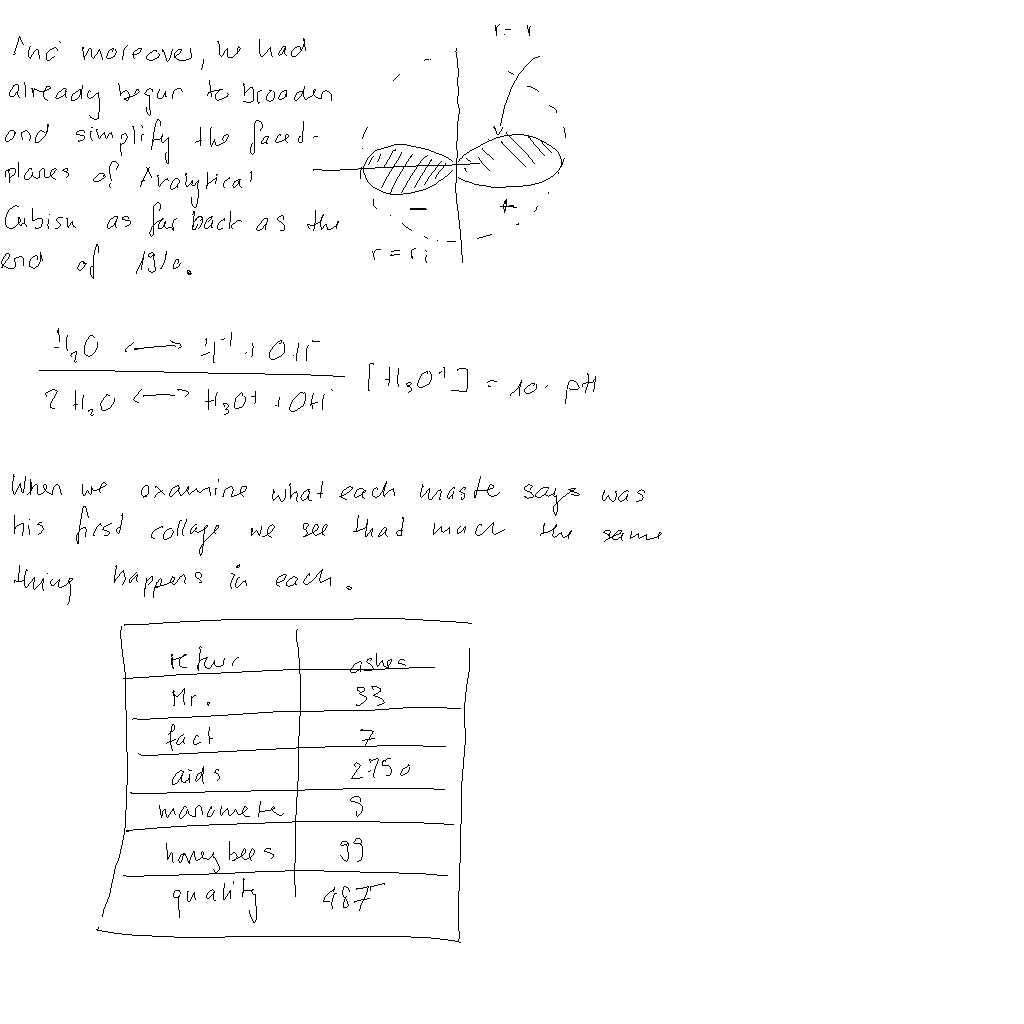 And moreover, he had
already begun to broaden
and simplify the faced-
planes of Analytical
Cubism as far back as the
end of 1910.
r = r
- +
r = ri
H₂O ⟷ H⁺ + OH⁻
2 H₂O ⟷ H₃O⁺ + OH⁻
[H₃O⁺] = 10- pH
When we examine what each maste says was
his first collage we see that much the same
thing happens in each.
ashes
Mr. 33
fact 7
aids 2750
manomete 9
honeybees 99
quality 487